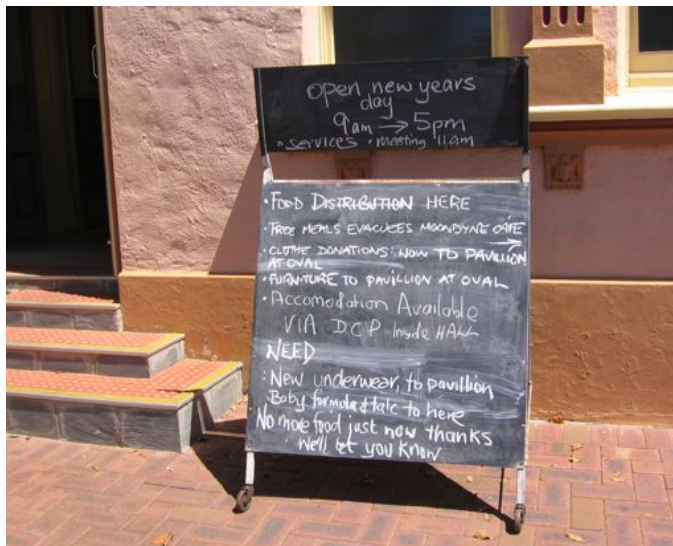 open new years
day
9am → 5pm
• services • meeting 11am
• FOOD DISTRIBUTION HERE
• FREE MEALS EVACUEES MOONDYNE CAFE →
• CLOTHE DONATIONS: NOW TO PAVILLION
AT OVAL
• FURNITURE TO PAVILLION AT OVAL
• Accomodation Available
VIA DCP Inside HALL
NEED
: New underwear, to pavillion
Baby formula & talc to here
No more food just now thanks
We'll let you know